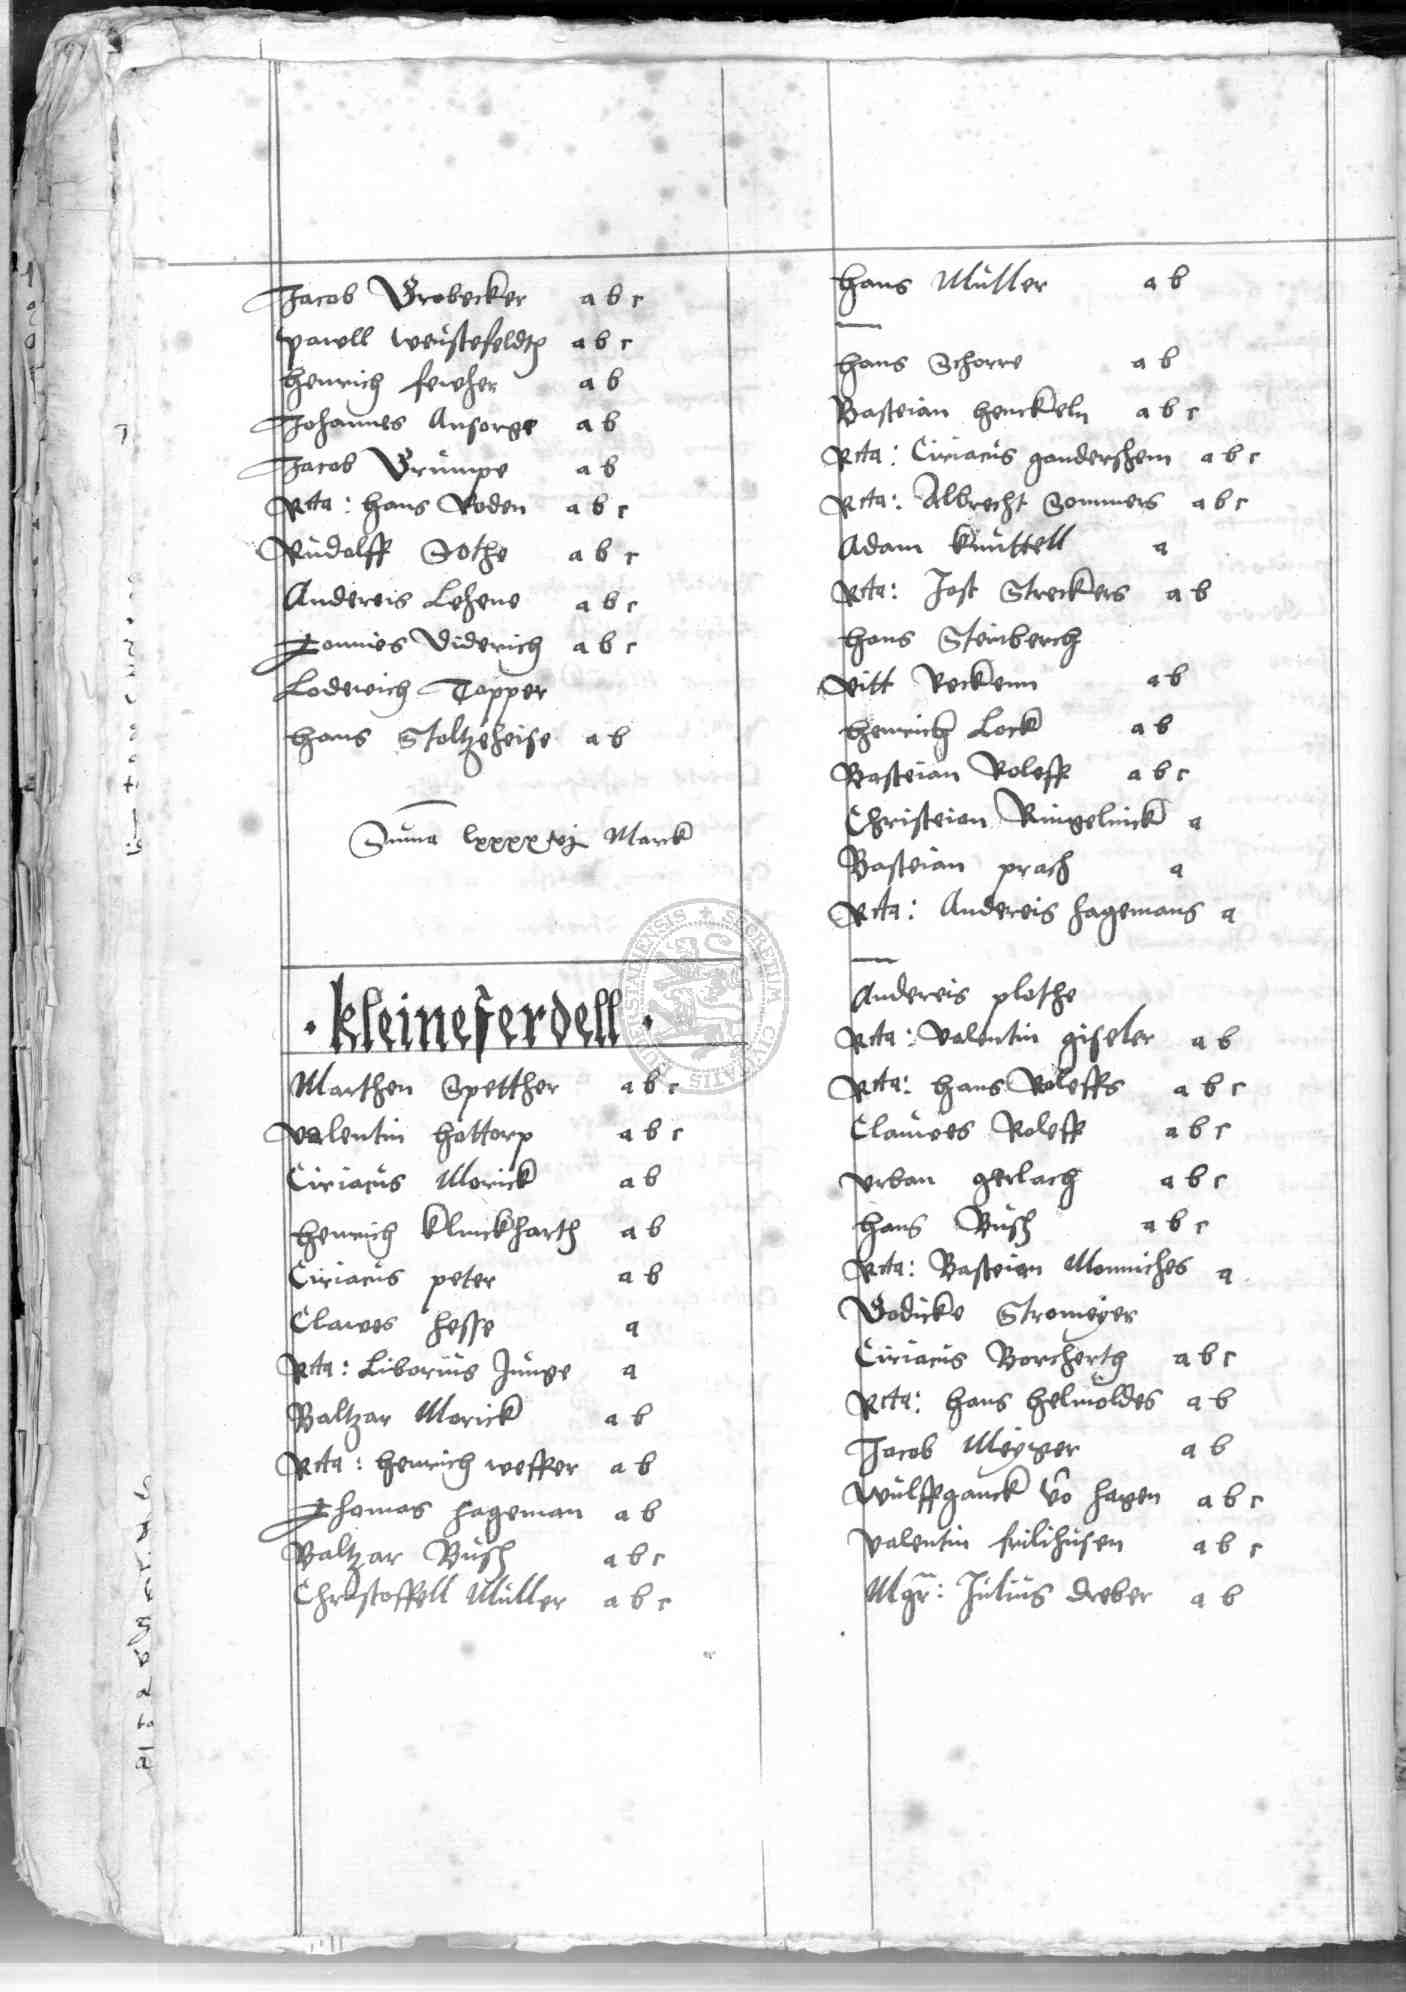 Jacob Grobecker a b c
pawell weustefeldth a b c
henrich fewher a b
Johannes Ansorge a b
Jacob Grumpe a b
Rcta: hans Roden a b c
Rudolff Sothe a b c
Andereis Lehene a b c
Tonnies Diderich a b c
Lodewich Topper
hans Stoltzeheise a b
Suma lxxxxvj Marck
· kleineferdell ·
Marthen Spetther a b c
valentin hottorp a b c
Ciriacus Morick a b
henrich klinckharth a b
Ciriacus peter a b
Clawes hesse a
Rcta: Liborius Junge a
Baltzar Morick a b
Rcta: henrich wesser a b
Thomas hageman a b
Baltzar Busch a b c
Christoffell Muller a b c
hans Muller a b
hans Schorre a b
Basteian henckeln a b c
Rcta: Ciriacus gandershem a b c
Rcta: Albrecht Sommers a b c
Adam knuttell a
Rcta: Jost Streckers a b
hans Steinberch
vitt Reckenn a b
henrich Lock a b
Basteian Roleff a b c
Christeian Ringelinck a
Basteian prach a
Rcta: Andereis hagemans a
Andereis plothe
Rcta: valentin giseler a b
Rcta: hans Roleffs a b c
Clawes Roleff a b c
vrban gerlach a b c
hans Busch a b c
Rcta: Basteian Monniches a
Godicke Stromeyer
Ciriacus Borcherth a b c
Rcta: hans helmoldes a b
Jacob Meyger a b
Wulffganck vo hagen a b c
valentin frilihusen a b c
Mgr: Julius dreber a b
SECRETUM CIVITATIS